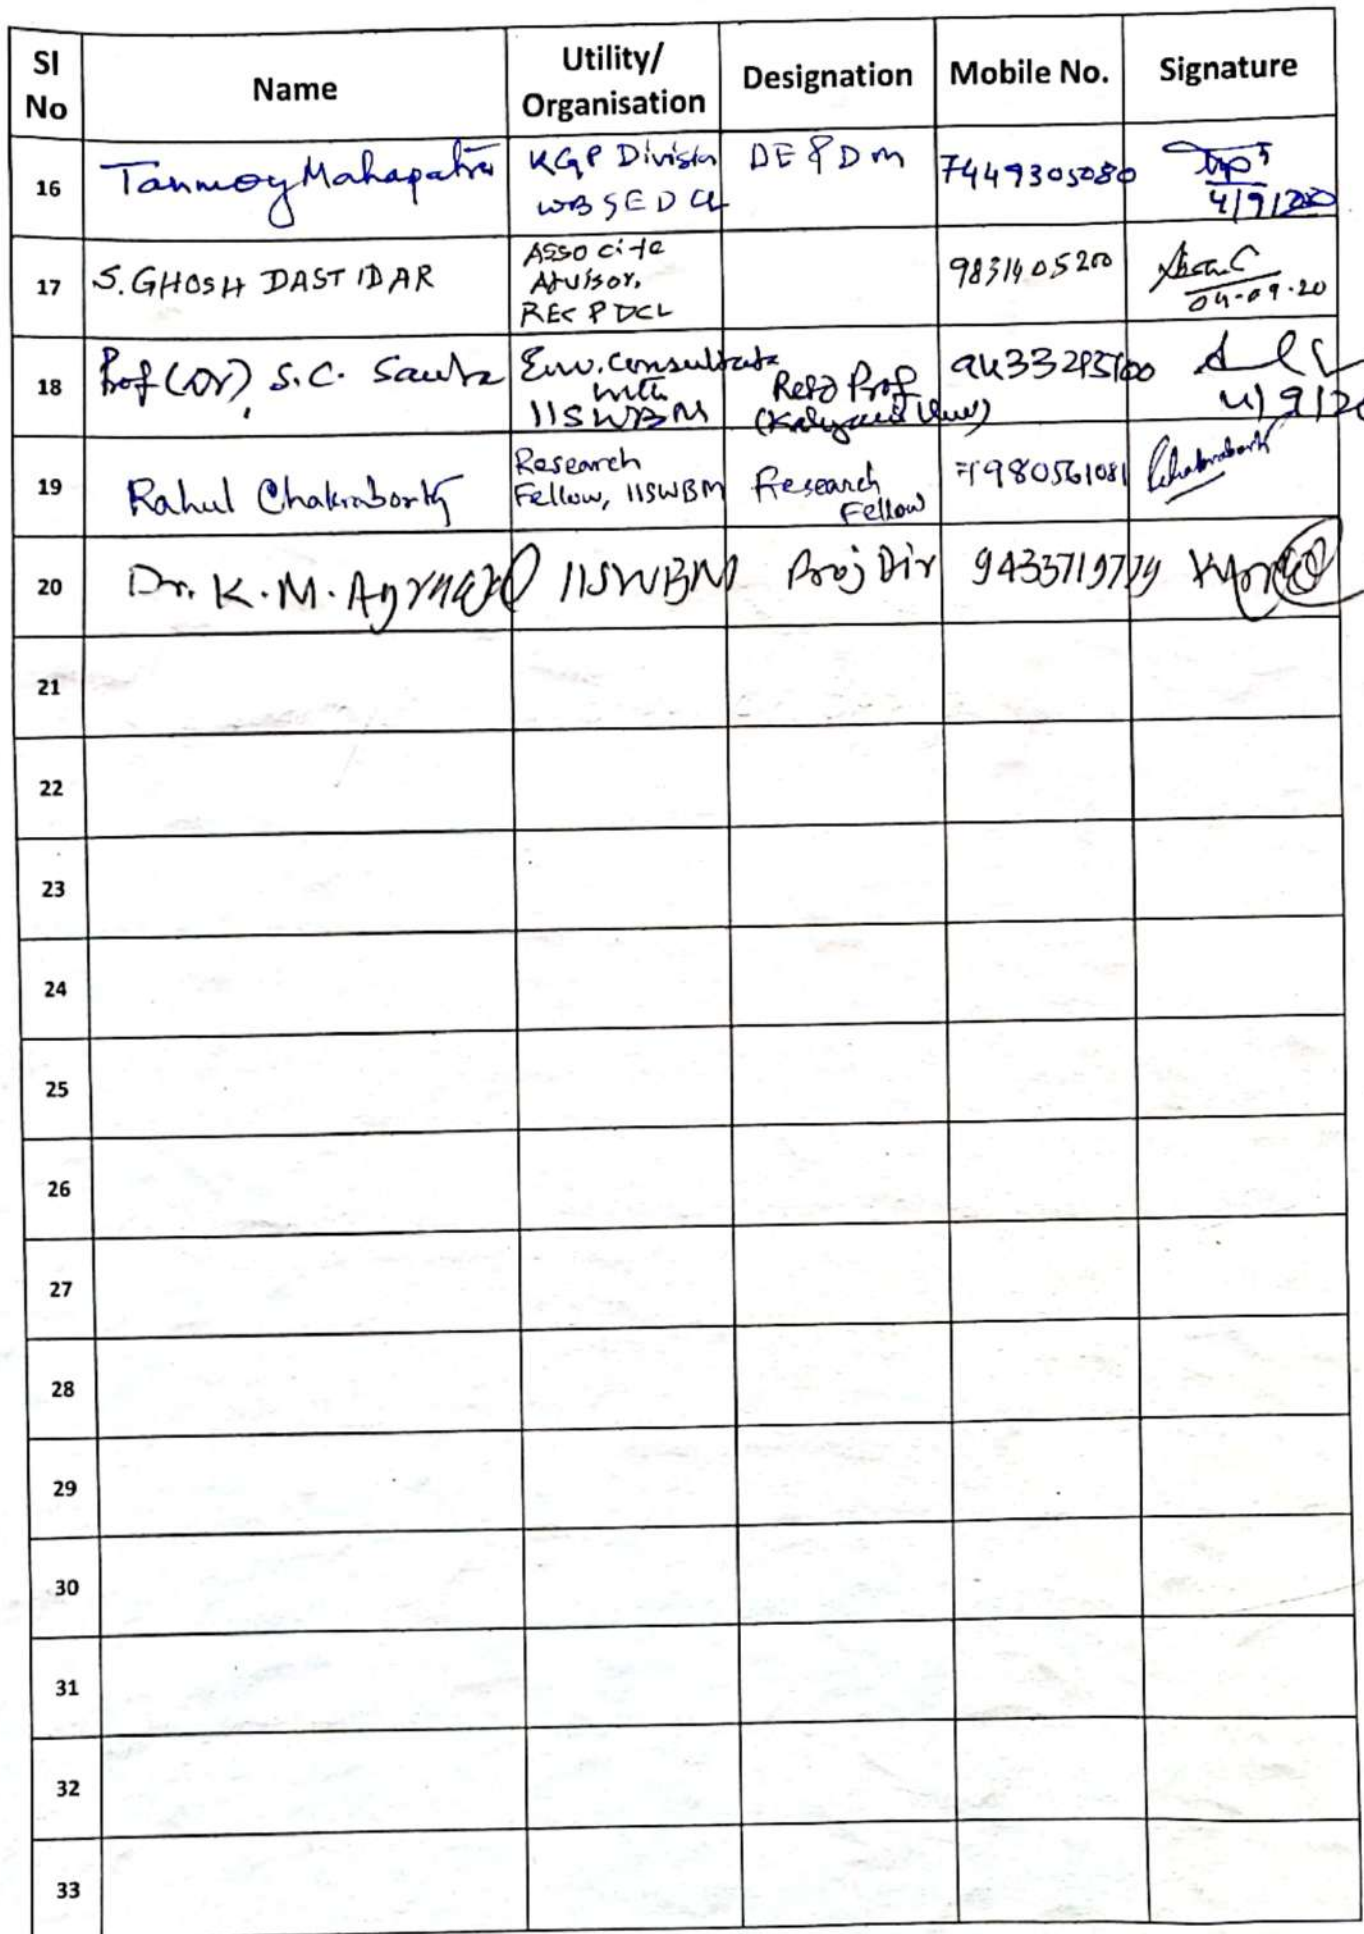 Sl No Name Utility/ Organisation Designation Mobile No. Signature
16 Tanmoy Mahapatra KGP Division WBSEDCL DE & DM 7449305080 4/9/20
17 S. GHOSH DASTIDAR Associte Advisor, REC PDCL 9831405200 04-09-20
18 Prof (Dr), S.C. Santra Env. Consultant with IISWBM Retd Prof (Kalyani Univ) 4/9/20
19 Rahul Chakraborty Research Fellow, IISWBM Research Fellow 7980561081 Chakraborty
20 Dr. K.M. Agrawal IISWBM Proj Dir
21
22
23
24
25
26
27
28
29
30
31
32
33